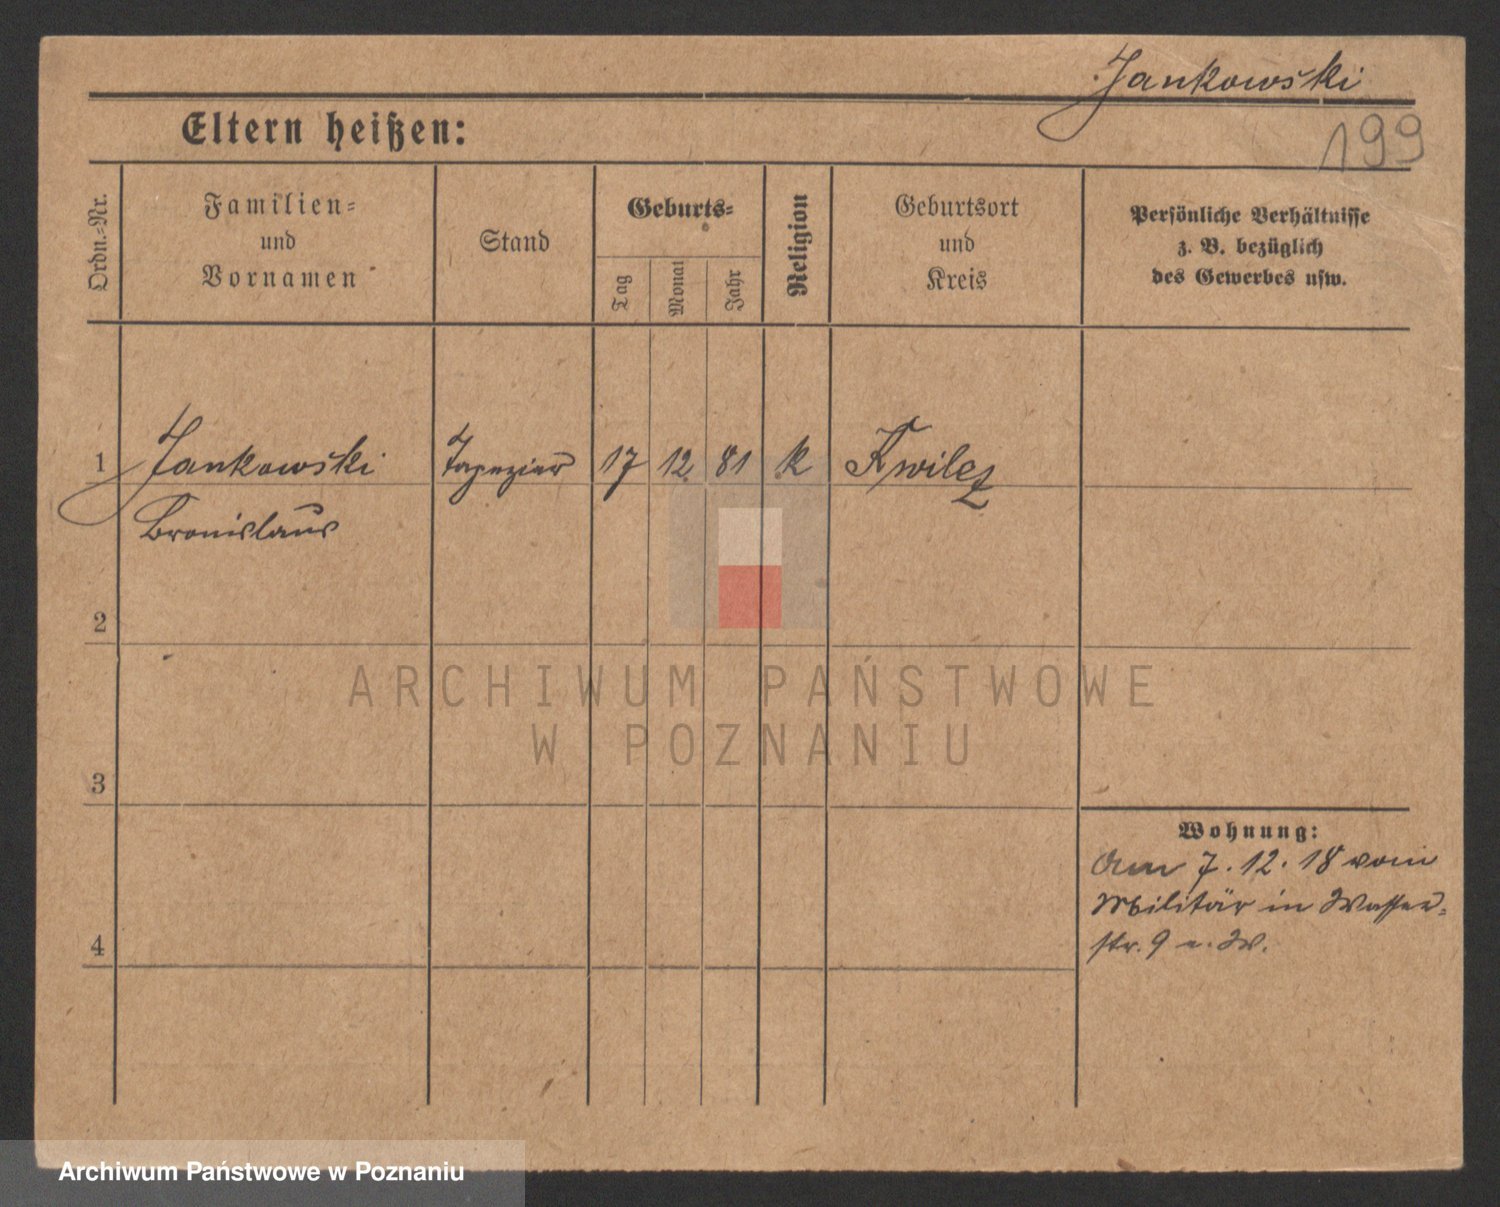 Jankowski
199
Eltern heißen:
Ordn.-Nr.
Familien-
und
Vornamen
Stand
Geburts-
Tag
Monat
Jahr
Religion
Geburtsort
und
Kreis
Persönliche Verhältnisse
z. B. bezüglich
des Gewerbes usw.
1 Jankowski Tapezier 17 12 81 k Kwilcz
Bronislaus
2
3
4
Wohnung:
Am 7. 12. 18 vom
Militär in Wasser-
str. 9 e. W.
ARCHIWUM PAŃSTWOWE
W POZNANIU
Archiwum Państwowe w Poznaniu